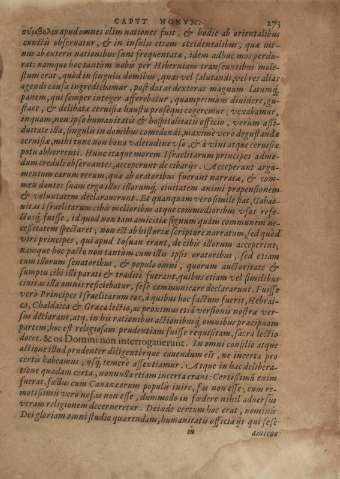 CAPVT NONVM. 273
σύμβολον apud omnes olim nationes fuit, & hodie ab orientalibus
cunctis obseruatur, & in insulis etiam occidentalibus, quæ mi-
nus ab exteris nationibus sunt frequentatæ, idem adhuc mos perdu-
rat: namque hoc tantùm nobis per Hiberniam transeuntibus mole-
stum erat, quòd in singulis domibus, quas vel salutandi, vel res alias
agendi causa ingrediebamur, post datas dexteras magnum latumq́;
panem, qui semper integer afferebatur, quamprimùm diuidere, gu-
stare, & delibata ceruisia haustu prosequi cogeremur, vexabamur,
enquam, non ipso humanitatis & hospitalitatis officio, verùm assi-
duitate illa, singulis in domibus comedendi, maximè verò degustandæ
ceruisiæ, mihi tunc non bona valetudine vso, & à vini atque ceruisiæ
potu abhorrenti. Hunc itaque morem Israelitarum principes adhi-
dum creduli obseruantes, acceperunt de cibarijs. Acceperunt argu-
mentum earum rerum, quæ ab oratoribus fuerant narratæ, & com-
meu dantes suam erga illos illorumq́; ciuitatem animi propensionem
& voluntatem declarauerunt. Et quanquam verisimile sit, Gabao-
nitas Israelitarum cibis melioribus atque commodioribus vsos refe-
ctosq́; fuisse, id quod non tam amicitiæ signum quàm communem ne-
cessitatem spectaret; non est ab historiæ scriptore narratum, sed quòd
viri principes, qui apud Iosuam erant, de cibis illorum acceperint,
namque hoc pacto non tantùm cum illis ipsis oratoribus, sed etiam
cum illorum senatoribus, & populo omni, quorum auctoritate &
sumptu cibi illi parati & traditi fuerant, quibus etiam vel similibus
ciuitas illa omnis reficiebatur, sese communicare declararunt. Fuisse
verò Principes Israelitarum eos, à quibus hoc factum fuerit, Hebrai-
ca, Chaldaica & Græca lectio, ac proximus etiam versionis nostræ ver-
sus declarant, atq; in his rationibus actionibusq́; omnibus præcipuam
partem, hoc est religiosam prudentiam fuisse requisitam, sacra lectio
docet. & os Domini non interrogauerunt. In omni consilio atque
actione illud prudenter diligenterque cauendum est, ne incerta pro
certis habeamus, ijsq́; temere assentiamur. Atque in hac delibera-
tione quædam certa, nonnulla etiam incerta erant. Certissimū enim
fuerat, fœdus cum Cananæorum populis inire, fas non esse; cum re-
motissimis verò nefas non esse, dummodo in fœdere nihil aduersus
veram religionem decerneretur. Deinde certum hoc erat, nominis
Dei gloriam omni studio quærendam, humanitatis officia ijs qui sese
in amicos